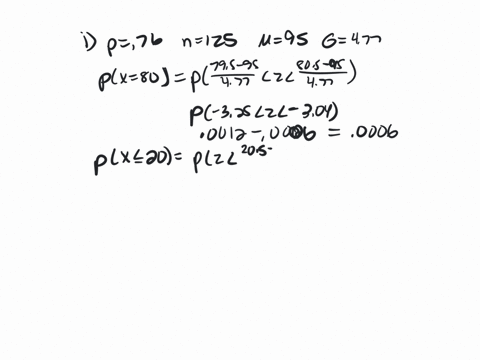 i) p=.76 n=125 μ=95 σ=4.77
p(x=80) = p(79.5-95/4.77 <z< 80.5-95/4.77)
p(-3.25<z<-3.04)
.0012-.0006 = .0006
p(x≤20)= p(z< 20.5-